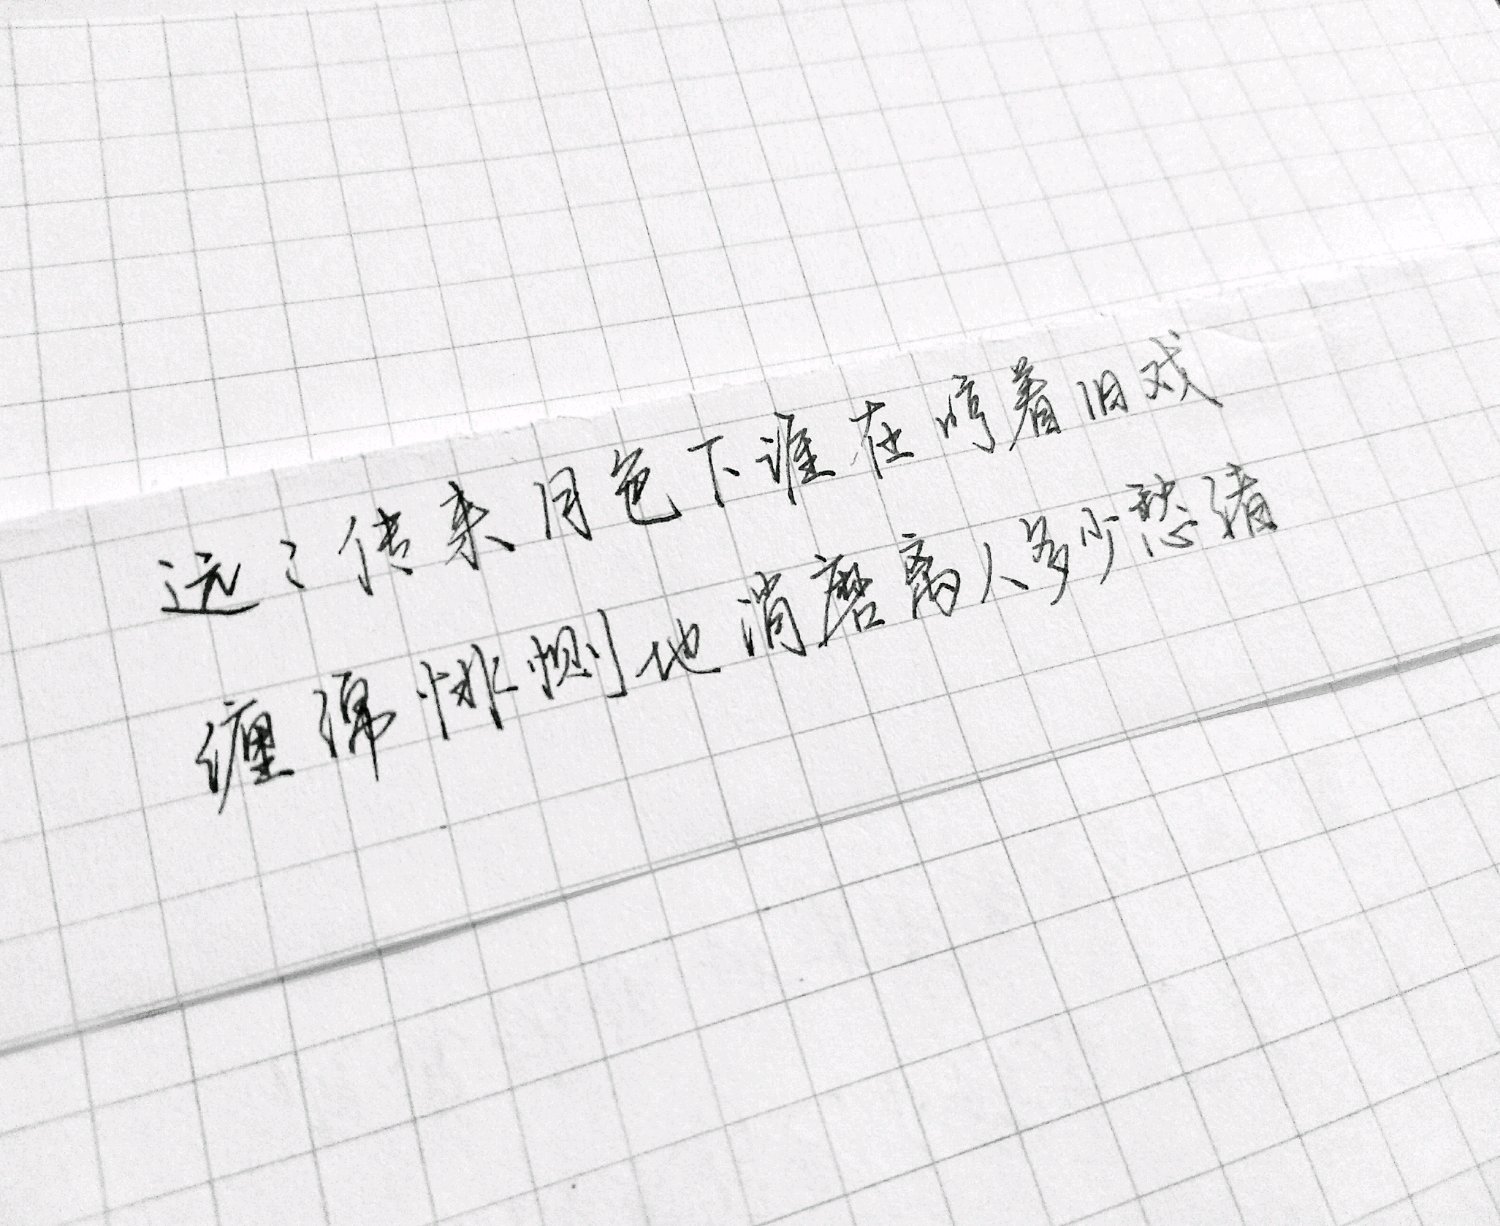 远远传来月色下谁在哼着旧戏
缠绵悱恻地消磨离人多少愁绪